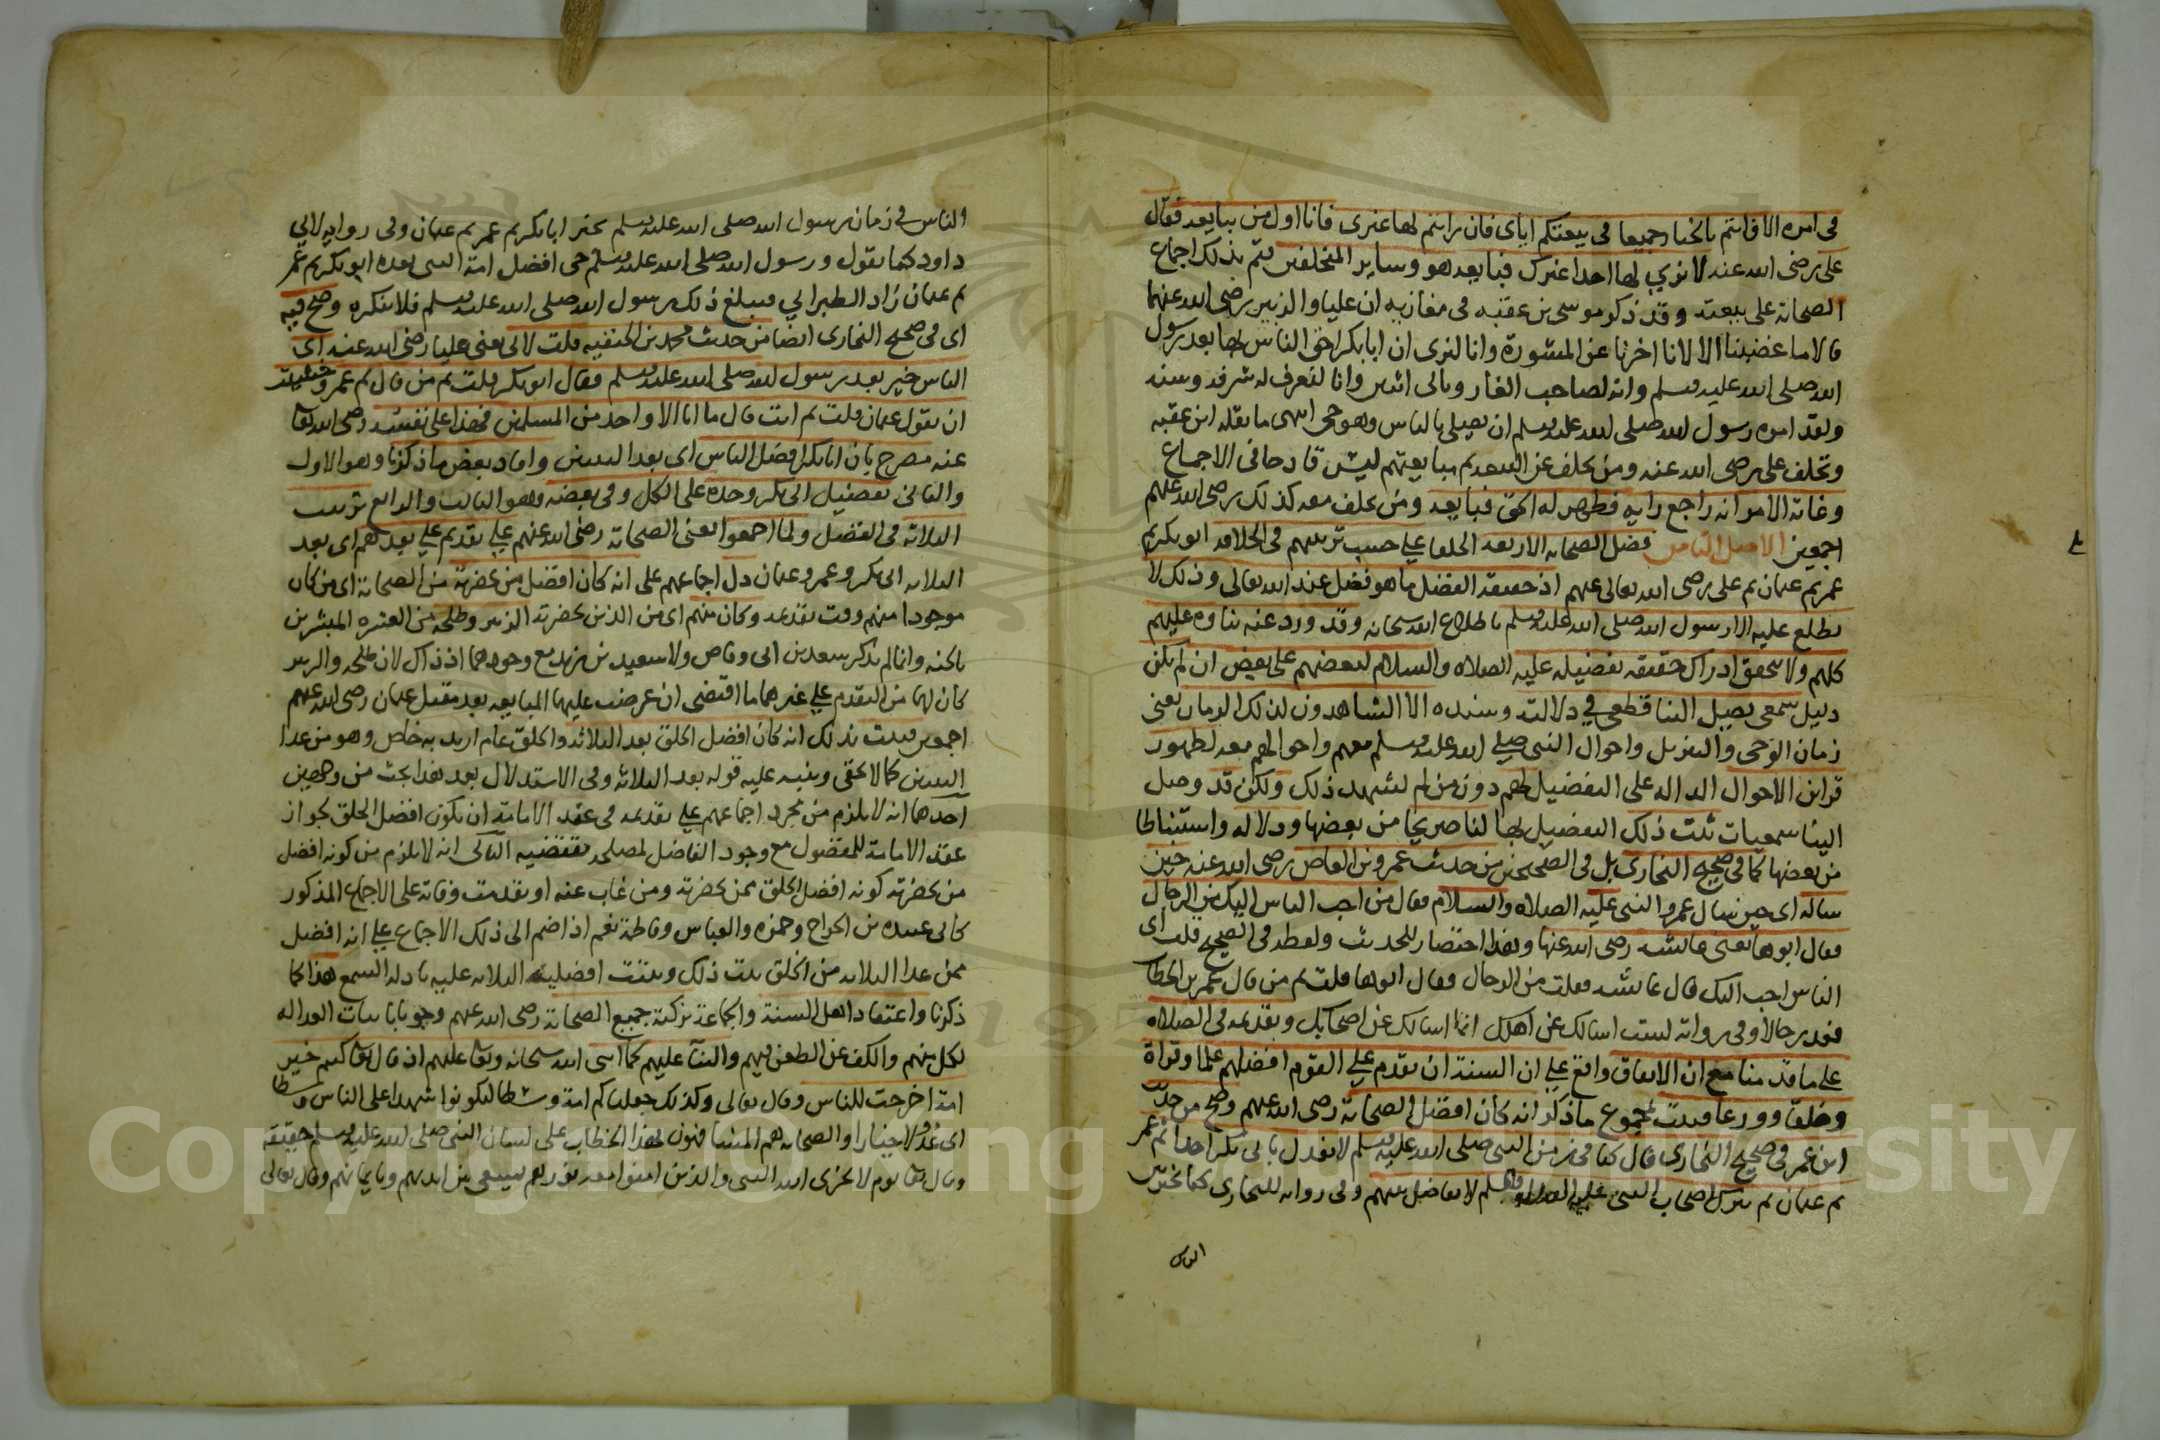 في امره الا فانتم بالخيار جميعا في بيعتكم اياى فان رايتم لها غيرى فانا اول من يبايعه فقال
على رضى الله عنه لا نري لها احدا غيرك فبايعه هو وساير المتخلفين فتم بذلك اجماع
الصحابة على بيعته وقد ذكر موسى بن عقبه في مغازيه ان عليا والزبير رضى الله عنهما
قالا ما غضبنا الا لانا اخرنا عن المشورة وانا لنرى ان ابا بكر احق الناس بها بعد رسول
الله صلى الله عليه وسلم وانه لصاحب الغار وثاني اثنين وانا لنعرف له شرفه وسنه
ولقد امره رسول الله صلى الله عليه وسلم ان يصلى بالناس وهو حي انتهى ما نقله ابن عقبه
وتخلف على رضى الله عنه ومن تخلف عن البيعة ثم مبايعتهم ليس قادحا في الاجماع
وغاية الامر انه راجع رايه فظهر له الحق فبايعه ومن تخلف معه كذلك رضى الله عنهم
اجمعين الاصل الثامن فضل الصحابه الاربعه الخلفا علي حسب ترتيبهم في الخلافه ابو بكر ثم
عمر ثم عثمان ثم على رضى الله تعالى عنهم اذ حقيقة الفضل ما هو فضل عند الله تعالى وذلك لا
يطلع عليه الا رسول الله صلى الله عليه وسلم باطلاع الله سبحانه وقد ورد عنه ثناوه عليهم
كلهم ولا يتحقق ادراك حقيقه تفضيله عليه الصلاه والسلام لبعضهم على بعض ان لم يكن
دليل سمعي يصل الينا قطعي في دلالته وسنده الا الشاهدون لذلك الزمان يعنى
زمان الوحى والتنزيل واحوال النبى صلي الله عليه وسلم معهم واحوالهم معه لظهور
قراين الاحوال الداله على التفضيل لهم دون من لم يشهد ذلك ولكن قد وصل
الينا سمعيات ثبت ذلك التفضيل بها لنا صريحا من بعضها ودلاله واستنباطا
من بعضها كما في صحيح البخارى بل في الصحيحين من حديث عمرو بن العاص رضى الله عنه حين
ساله اى حين سال عمرو النبى عليه الصلاه والسلام فقال من احب الناس اليك من الرجال
فقال ابوها يعنى عائشه رضى الله عنها وهذا اختصار للحديث ولفظه في الصحيح قلت اى
الناس احب اليك قال عائشه فقلت من الرجال فقال ابوها قلت ثم من قال عمر بن الخطاب
فعد رجالا وفي رواية لست اسالك عن اهلك انما اسالك عن اصحابك وتقديمه في الصلاه
علي ما قدمنا مع ان الاتفاق واقع علي ان السنة ان يقدم علي القوم افضلهم علما وقراة
وخلقا وورعا فثبت بمجموع ما ذكر انه كان افضل الصحابة رضى الله عنهم وصح من حديث
ابن عمر في صحيح البخارى قال كنا في زمن النبى صلى الله عليه وسلم لا نعدل بابى بكر احدا ثم عمر
ثم عثمان ثم نترك اصحاب النبى عليه وسلم لا نفاضل بينهم وفي روايه للبخارى كنا نخير
الناس
والناس في زمان رسول الله صلى الله عليه وسلم نخير ابا بكر ثم عمر ثم عثمان وفي روايه لابي
داود كنا نقول ورسول الله صلى الله عليه وسلم حى افضل امة النبى بعده ابو بكر ثم عمر
ثم عثمان زاد الطبراني فيبلغ ذلك رسول الله صلى الله عليه وسلم فلا ينكره وصح فيه
اى في صحيح البخارى ايضا من حديث محمد بن الحنفيه قلت لابي يعنى عليا رضى الله عنه اى
الناس خير بعد رسول الله صلى الله عليه وسلم فقال ابو بكر قلت ثم من قال ثم عمر وخشيت
ان يقول عثمان قلت ثم انت قال ما انا الا واحد من المسلمين فهذا على نفسه رضى الله تعا
عنه مصرح بان ابا بكر افضل الناس اى بعد النبيين وافاد بعض ما ذكرنا وهو الاول
والثاني تفضيل ابي بكر وحده على الكل وفي بعضه وهو الثالث والرابع ترتيب
الثلاثه في الفضل ولما اجمعوا يعنى الصحابة رضى الله عنهم علي تقديم علي بعدهم اى بعد
الثلاثه ابى بكر وعمر وعثمان دل اجماعهم على انه كان افضل من بحضرته من الصحابة اى من كان
موجودا منهم وقت تقديمه وكان منهم اى من الذين بحضرته الزبير وطلحه من العشره المبشرين
بالجنه وانما لم يذكر سعد بن ابى وقاص ولا سعيد بن زيد مع وجودهما اذ ذاك لان طلحه والزبير
كان لهما من التقدم علي غيرهما ما اقتضى ان عرضت عليهما المبايعه بعد مقتل عثمان رضى الله عنهم
اجمعين فثبت بذلك انه كان افضل الخلق بعد الثلاثه والخلق عام اريد به خاص وهو من عدا
النبيين كما لا يخفى وينبه عليه قوله بعد الثلاثه وفي الاستدلال بعد هذا بحث من وجهين
احدهما انه لا يلزم من مجرد اجماعهم علي تقديمه في عقد الامامة ان يكون افضل الخلق لجواز
عقد الامامة للمفضول مع وجود الفاضل لمصلحه تقتضيه الثاني انه لا يلزم من كونه افضل
من بحضرته كونه افضل الخلق ممن بحضرته ومن غاب عنه او تقدمت وفاته على الاجماع المذكور
كابى عبيده بن الجراح وحمزه والعباس وفاطمة نعم اذا ضم الى ذلك الاجماع علي انه افضل
ممن عدا الثلاثه من الخلق ثبت ذلك ويثبت افضلية الثلاثه عليه بادلة السمع هذا كما
ذكرنا واعتقاد اهل السنة والجماعة تزكية جميع الصحابة رضى الله عنهم وجوبا باثبات العداله
لكل منهم والكف عن الطعن فيهم والثنا عليهم كما اثنى الله سبحانه وتعا عليهم اذ قال تعا كنتم خير
امة اخرجت للناس وقال تعالى وكذلك جعلناكم امة وسطا لتكونوا شهدا على الناس وسطا
اى عُدُولا خيارا والصحابه هم المشافهون بهذا الخطاب على لسان النبى صلى الله عليه وسلم حقيقة
وقال تعا يوم لا يخزى الله النبى والذين امنوا معه نورهم يسعى بين ايديهم وبايمانهم وقال تعالى